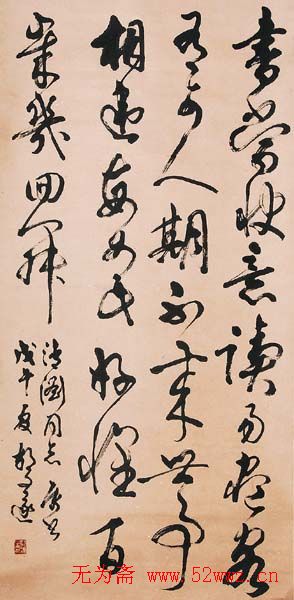 書當快意讀易盡客
有可人期不來世事
相違每如此好懷百
歲幾回開
同志屬書
戊午夏胡問遂
无为斋 www.52wwz.cn